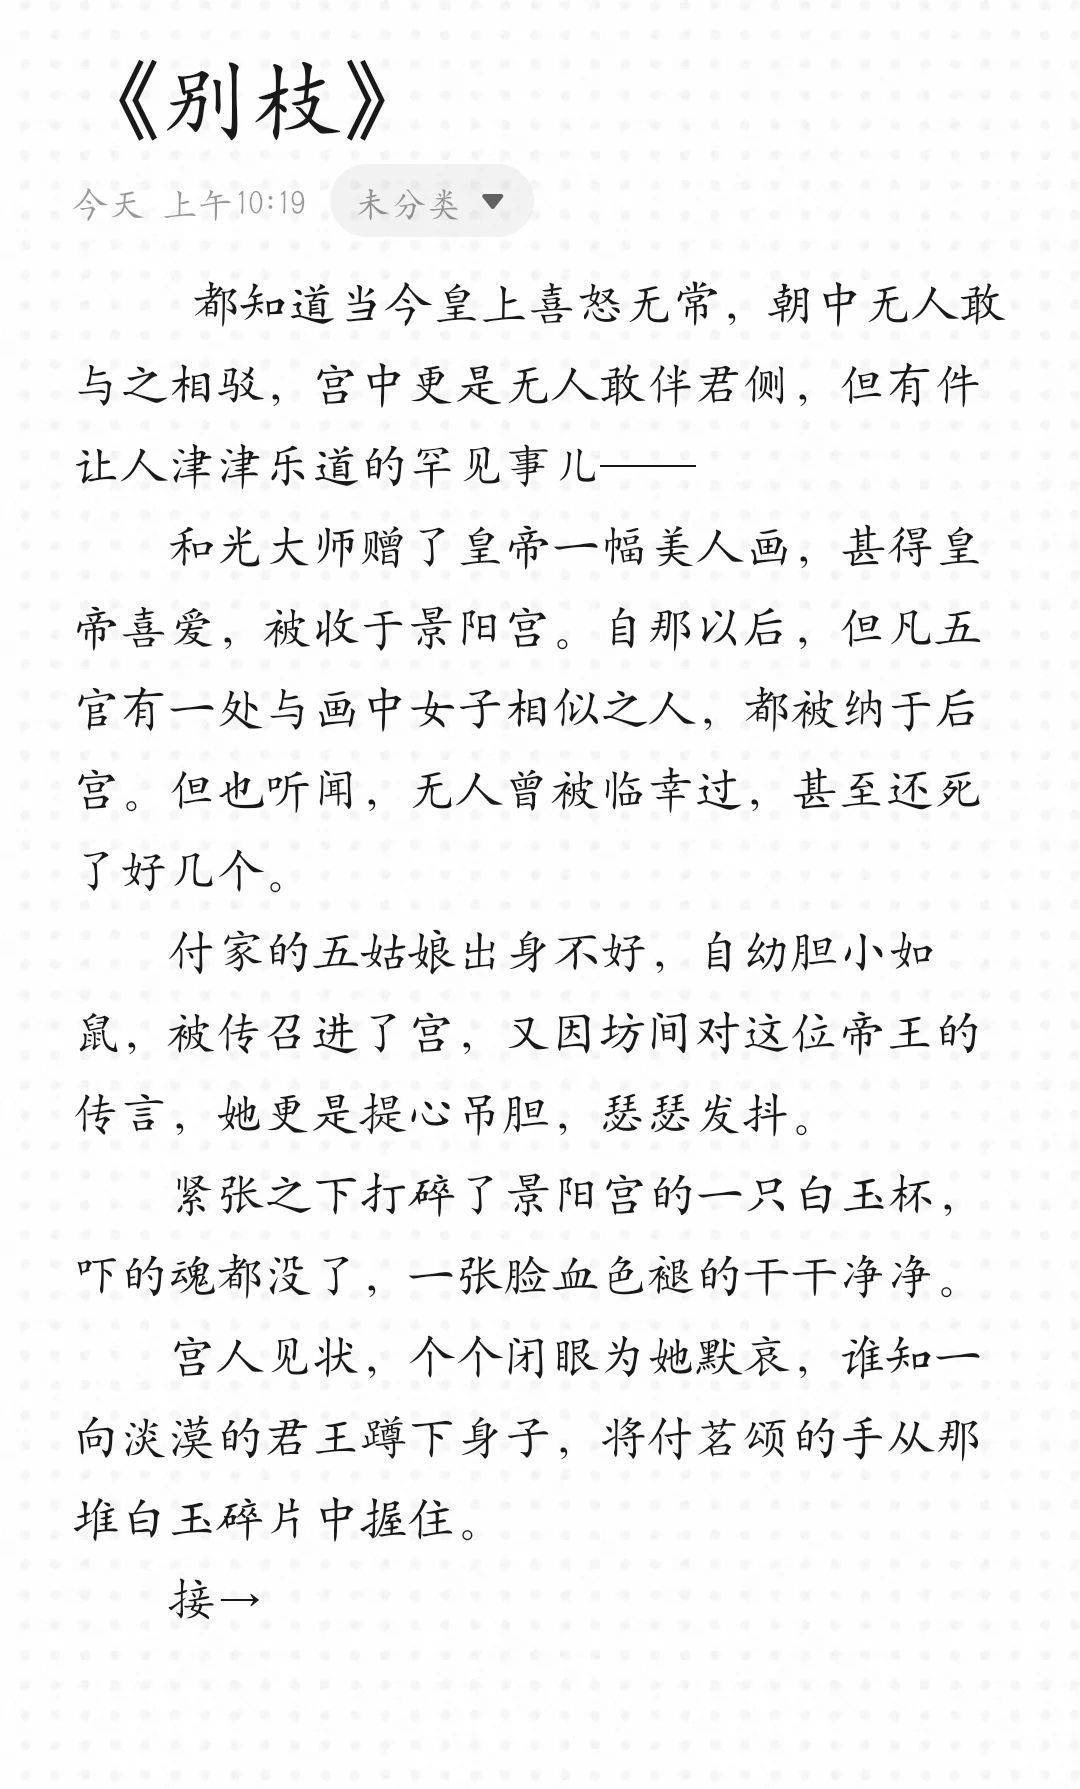 《别枝》
今天 上午10:19 未分类
都知道当今皇上喜怒无常，朝中无人敢
与之相驳，宫中更是无人敢伴君侧，但有件
让人津津乐道的罕见事儿——
和光大师赠了皇帝一幅美人画，甚得皇
帝喜爱，被收于景阳宫。自那以后，但凡五
官有一处与画中女子相似之人，都被纳于后
宫。但也听闻，无人曾被临幸过，甚至还死
了好几个。
付家的五姑娘出身不好，自幼胆小如
鼠，被传召进了宫，又因坊间对这位帝王的
传言，她更是提心吊胆，瑟瑟发抖。
紧张之下打碎了景阳宫的一只白玉杯，
吓的魂都没了，一张脸血色褪的干干净净。
宫人见状，个个闭眼为她默哀，谁知一
向淡漠的君王蹲下身子，将付茗颂的手从那
堆白玉碎片中握住。
接→